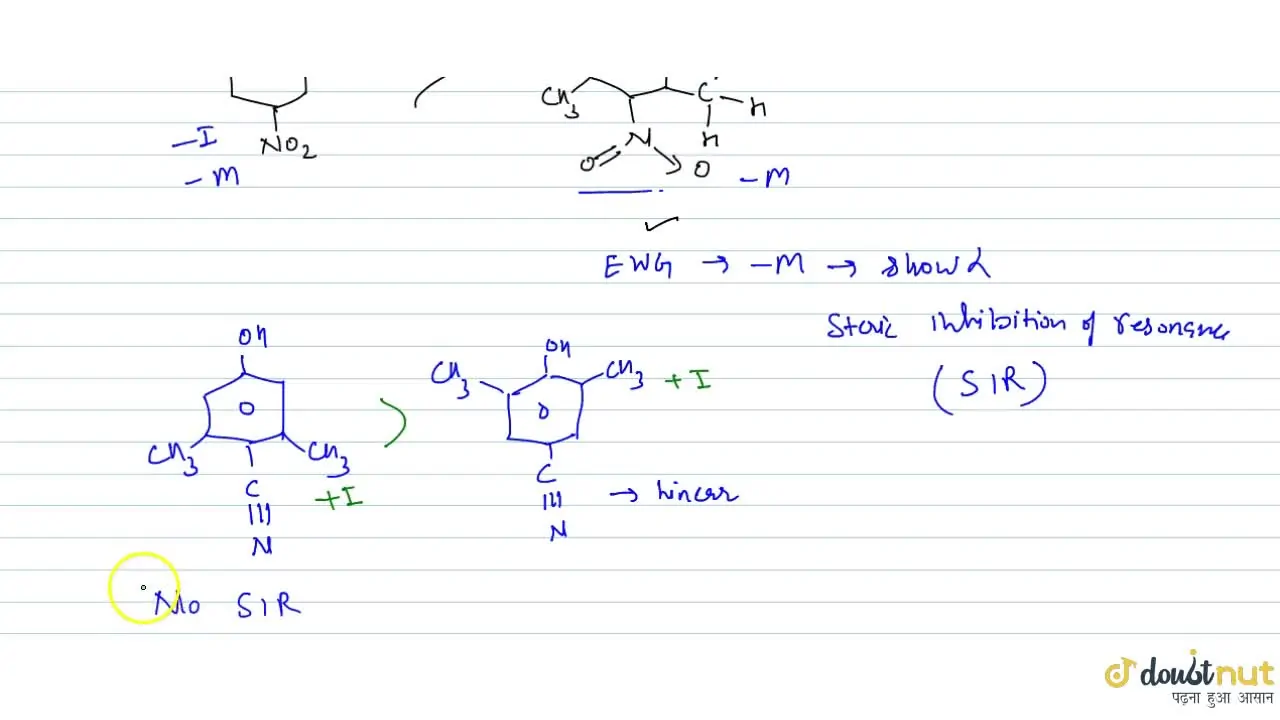 CH3
C
H
-I
NO2
N
H
O
O
-M
-M
EWG → -M → shows
Steric inhibition of resonance
(SIR)
OH
OH
CH3
CH3 +I
O
O
CH3
CH3
+I
C
N
C
N
→ linear
No SIR
doubtnut
पढ़ना हुआ आसान